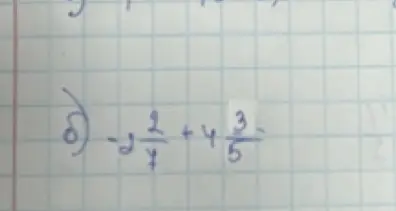 б) -2 2/7 + 4 3/5